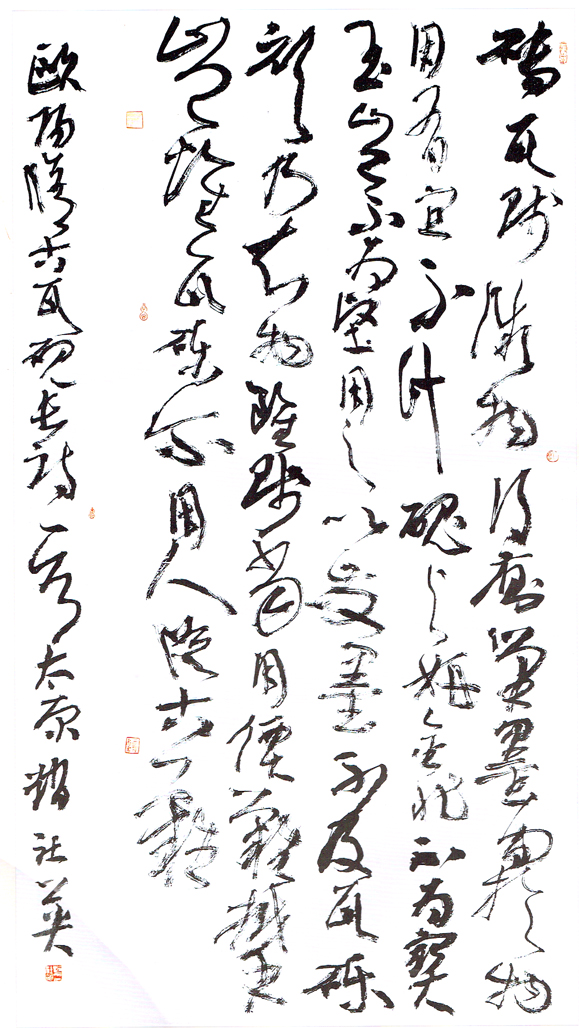 磚瓦賤微物得廁筆墨間於物
用有宜不計醜與妍金非不為寶
玉豈不為堅用之以發墨不及瓦礫
頑乃知物雖賤當用價難攀
豈惟瓦礫尔用人從古難
歐陽脩古瓦硯長詩一首太原社英